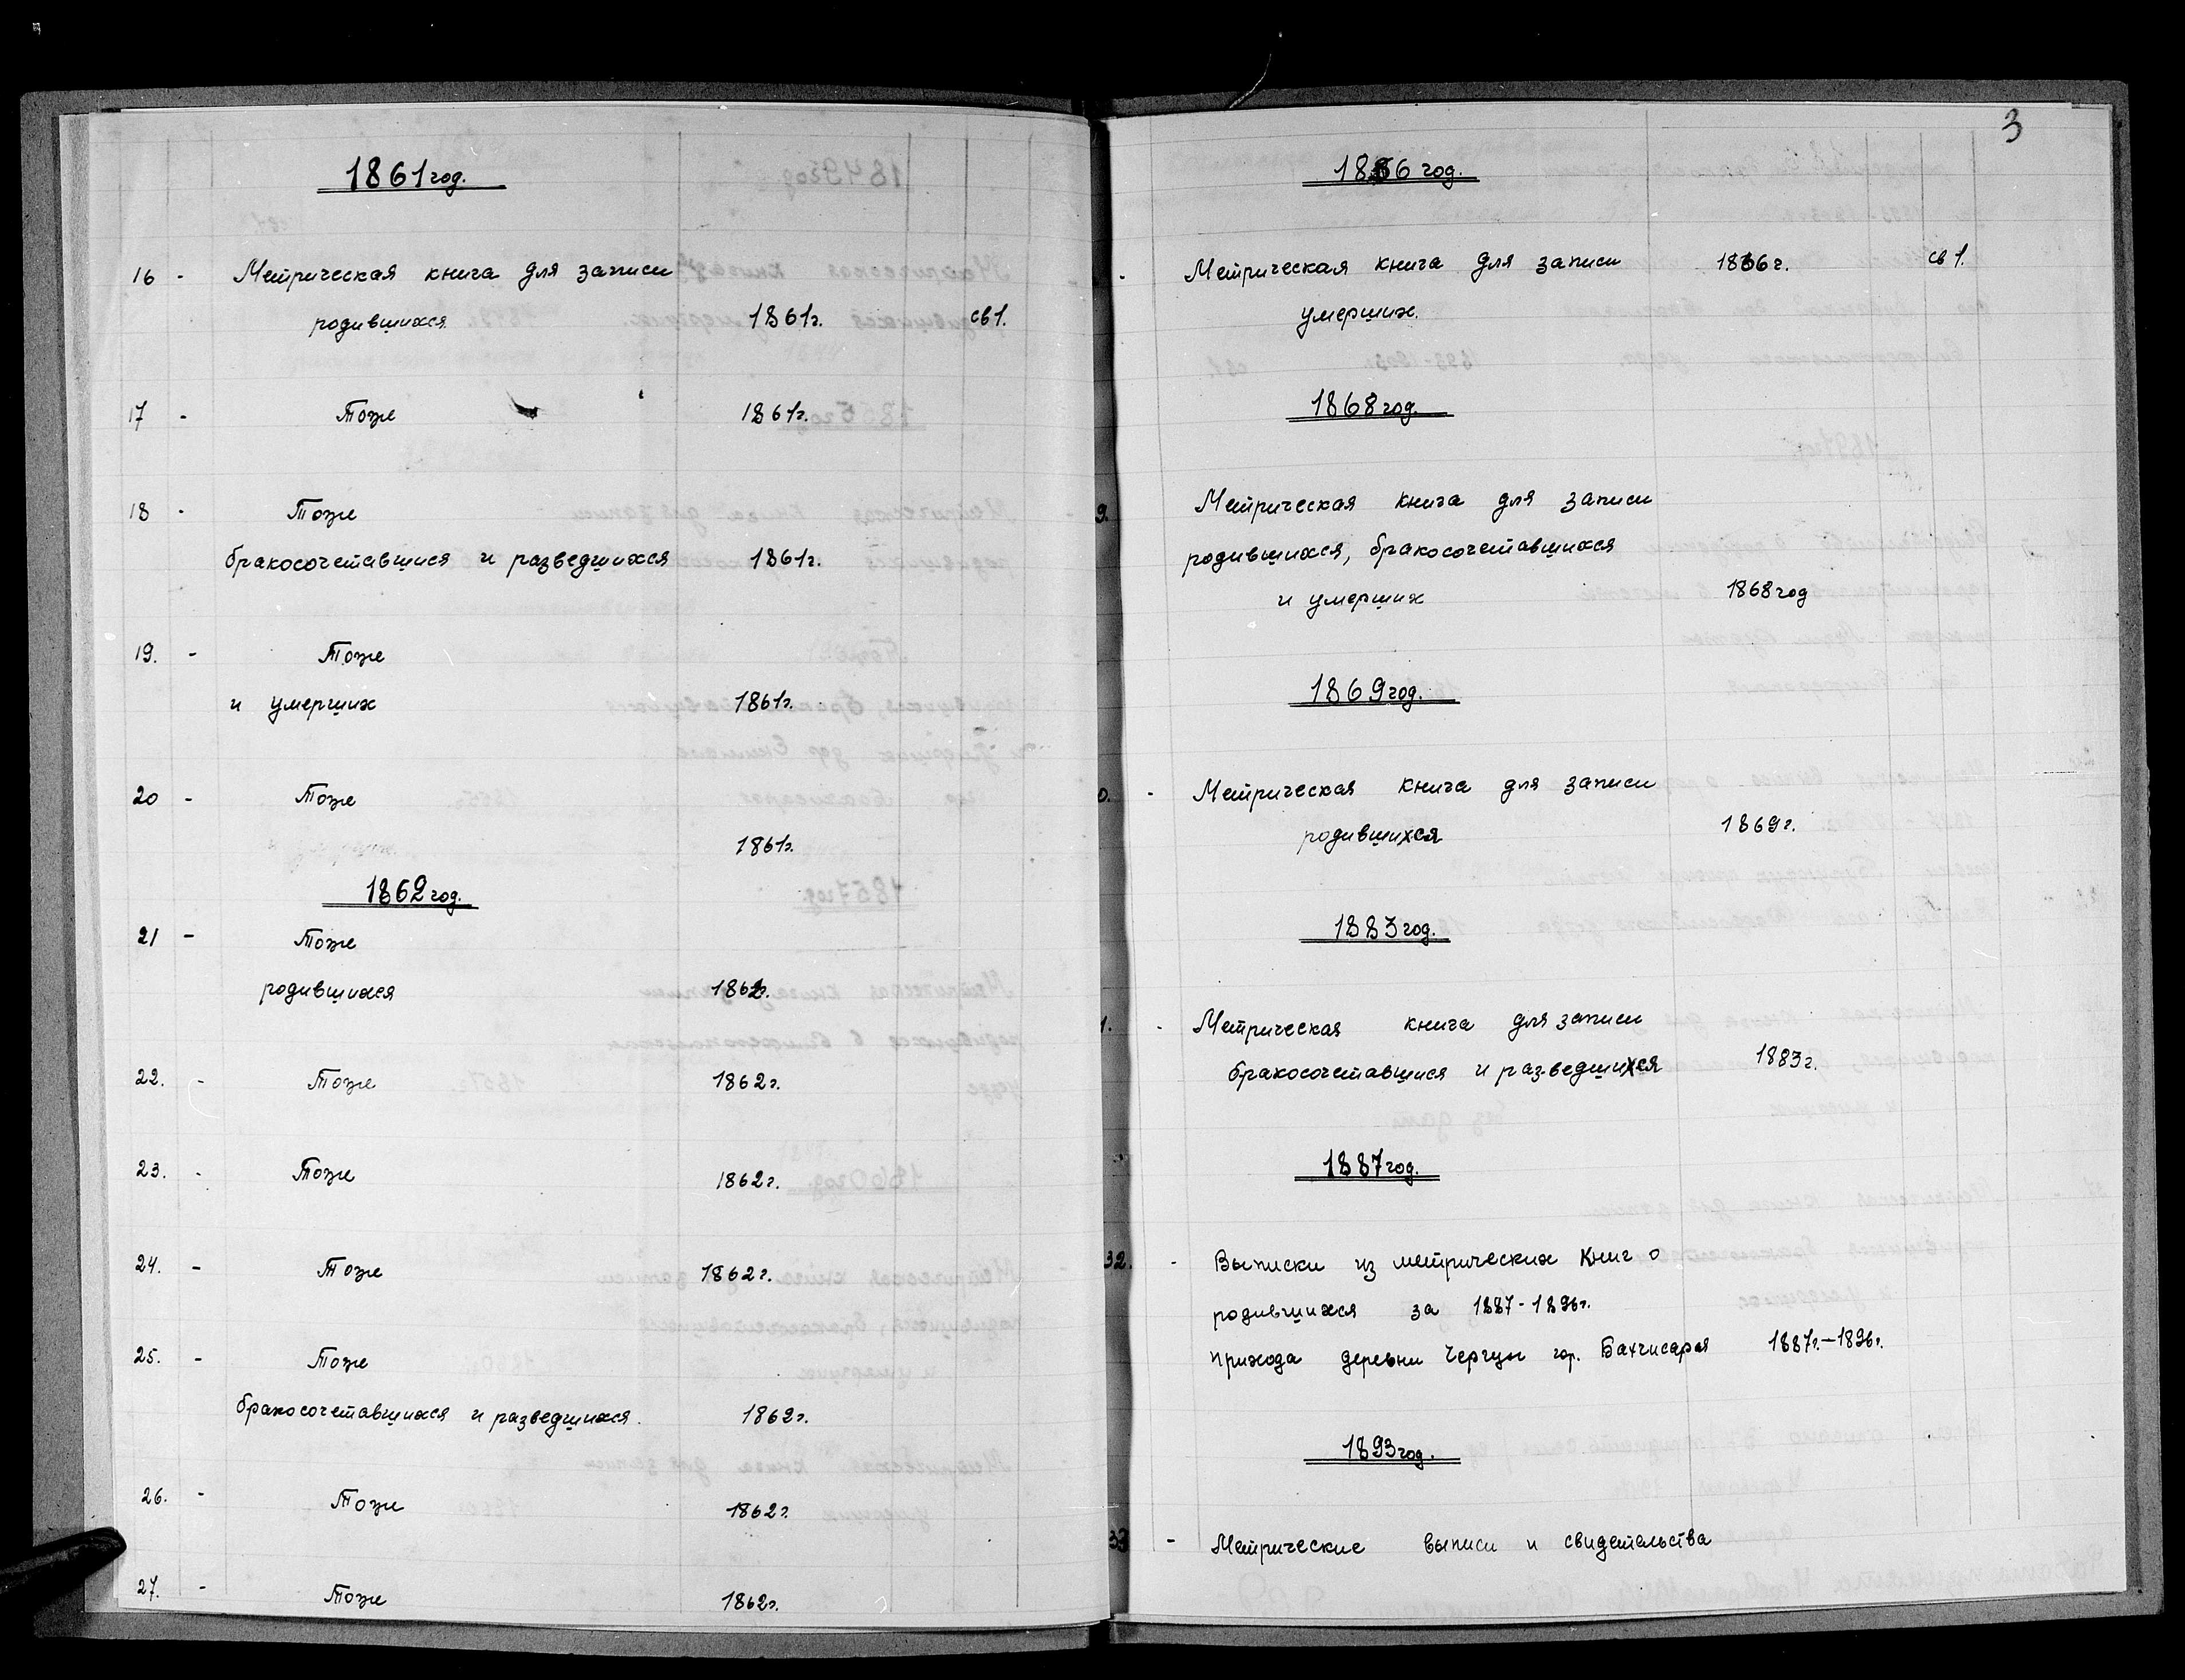 1861 год.
16 - Метрическая книга для записи
родившихся 1861г. св 1.
17 - Тоже 1861г.
18 - Тоже
бракосочетавшися и разведшихся 1861г.
19. - Тоже
и умерших 1861г.
20 - Тоже
1861г.
1862 год.
21 - Тоже
родившихся 1862г.
22. - Тоже 1862г.
23. - Тоже 1862г.
24. - Тоже 1862г.
25. - Тоже
бракосочетавшихся и разведшихся. 1862г.
26. - Тоже 1862г.
27. - Тоже 1862г.
3
1866 год.
- Метрическая книга для записи 1866г. св 1.
умерших.
1868 год.
9. Метрическая книга для записи
родившихся, бракосочетавшихся
и умерших 1868 год
1869 год.
0. - Метрическая книга для записи
родившихся 1869г.
1883 год.
1. - Метрическая книга для записи
бракосочетавшися и разведшихся 1883г.
1887 год.
32. - Выписки из метрических книг о
родившихся за 1887-1896г.
прихода деревни гор. Бахчисарая 1887г.-1896г.
1893 год.
33 - Метрические выписи и свидетельства